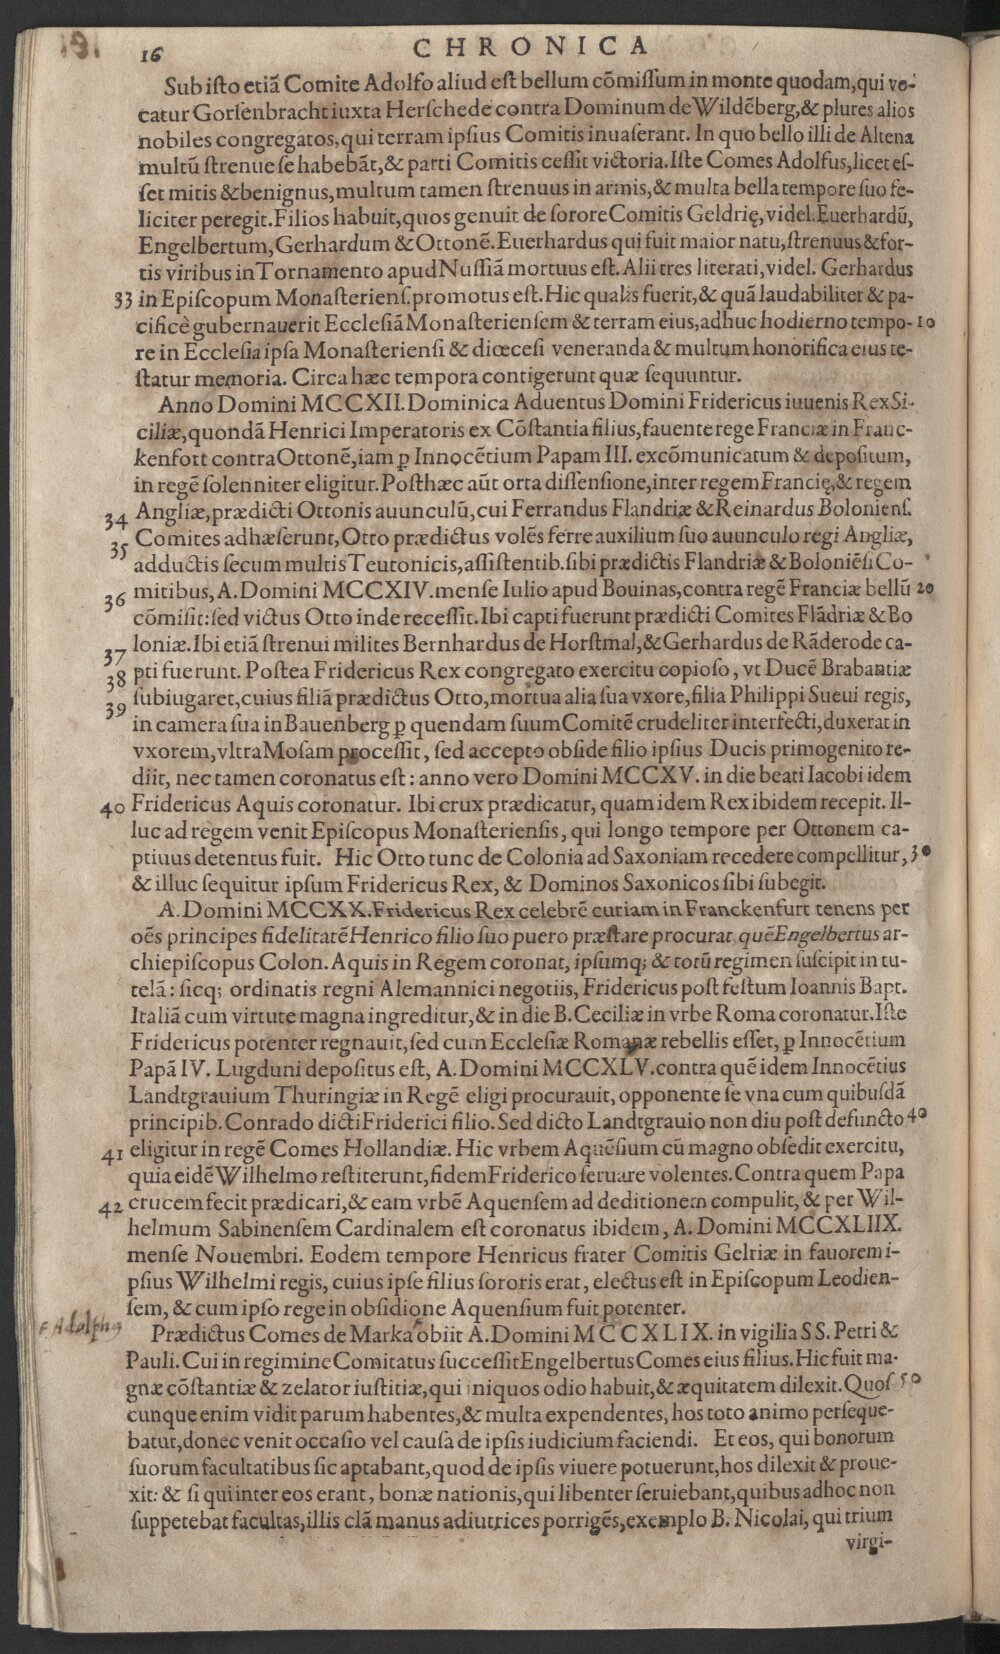 16 CHRONICA
Sub isto etiã Comite Adolfo aliud est bellum cõmissum in monte quodam, qui vo-
catur Gorsenbracht iuxta Herschede contra Dominum de Wildẽberg, & plures alios
nobiles congregatos, qui terram ipsius Comitis inuaserant. In quo bello illi de Altena
multũ strenue se habebãt, & parti Comitis cessit victoria. Iste Comes Adolfus, licet es-
set mitis & benignus, multum tamen strenuus in armis, & multa bella tempore suo fe-
liciter peregit. Filios habuit, quos genuit de sorore Comitis Geldrię, videl. Euerhardũ,
Engelbertum, Gerhardum & Ottonẽ. Euerhardus qui fuit maior natu, strenuus & for-
tis viribus in Tornamento apud Nussiã mortuus est. Alii tres literati, videl. Gerhardus
33 in Episcopum Monasteriens. promotus est. Hic qualis fuerit, & quã laudabiliter & pa-
cificè gubernauerit Ecclesiã Monasteriensem & terram eius, adhuc hodierno tempo- 10
re in Ecclesia ipsa Monasteriensi & diœcesi veneranda & multum honorifica eius te-
statur memoria. Circa hæc tempora contigerunt quæ sequuntur.
Anno Domini MCCXII. Dominica Aduentus Domini Fridericus iuuenis Rex Si-
ciliæ, quondã Henrici Imperatoris ex Cõstantia filius, fauente rege Franciæ in Franc-
kenfort contra Ottonẽ, iam ꝑ Innocẽtium Papam III. excõmunicatum & depositum,
in regẽ solenniter eligitur. Post hæc aũt orta dissensione, inter regem Francię, & regem
34 Angliæ, prædicti Ottonis auunculũ, cui Ferrandus Flandriæ & Reinardus Boloniens.
35 Comites adhæserunt, Otto prædictus volẽs ferre auxilium suo auunculo regi Angliæ,
adductis secum multis Teutonicis, assistentib. sibi prædictis Flandriæ & Boloniẽsi Co-
36 mitibus, A. Domini MCCXIV. mense Iulio apud Bouinas, contra regẽ Franciæ bellũ 20
cõmisit: sed victus Otto inde recessit. Ibi capti fuerunt prædicti Comites Flãdriæ & Bo
37 loniæ. Ibi etiã strenui milites Bernhardus de Horstmal, & Gerhardus de Rãderode ca-
38 pti fuerunt. Postea Fridericus Rex congregato exercitu copioso, vt Ducẽ Brabantiæ
39 subiugaret, cuius filiã prædictus Otto, mortua alia sua vxore, filia Philippi Sueui regis,
in camera sua in Bauenberg ꝑ quendam suum Comitẽ crudeliter interfecti, duxerat in
vxorem, vltra Mosam processit, sed accepto obside filio ipsius Ducis primogenito re-
diit, nec tamen coronatus est: anno vero Domini MCCXV. in die beati Iacobi idem
40 Fridericus Aquis coronatur. Ibi crux prædicatur, quam idem Rex ibidem recepit. Il-
luc ad regem venit Episcopus Monasteriensis, qui longo tempore per Ottonem ca-
ptiuus detentus fuit. Hic Otto tunc de Colonia ad Saxoniam recedere compellitur, 30
& illuc sequitur ipsum Fridericus Rex, & Dominos Saxonicos sibi subegit.
A. Domini MCCXX. Fridericus Rex celebrẽ curiam in Franckenfurt tenens per
oẽs principes fidelitatẽ Henrico filio suo puero præstare procurat quẽ Engelbertus ar-
chiepiscopus Colon. Aquis in Regem coronat, ipsumq; & totũ regimen suscipit in tu-
telã: sicq; ordinatis regni Alemannici negotiis, Fridericus post festum Ioannis Bapt.
Italiã cum virtute magna ingreditur, & in die B. Ceciliæ in vrbe Roma coronatur. Iste
Fridericus potenter regnauit, sed cum Ecclesiæ Romanæ rebellis esset, ꝑ Innocẽtium
Papã IV. Lugduni depositus est, A. Domini MCCXLV. contra quẽ idem Innocẽtius
Landtgrauium Thuringiæ in Regẽ eligi procurauit, opponente se vna cum quibusdã
principib. Conrado dicti Friderici filio. Sed dicto Landtgrauio non diu post defuncto 40
41 eligitur in regẽ Comes Hollandiæ. Hic vrbem Aquẽsium cũ magno obsedit exercitu,
quia eidẽ Wilhelmo restiterunt, fidem Friderico seruare volentes. Contra quem Papa
42 crucem fecit prædicari, & eam vrbẽ Aquensem ad deditionem compulit, & per Wil-
helmum Sabinensem Cardinalem est coronatus ibidem, A. Domini MCCXLIIX.
mense Nouembri. Eodem tempore Henricus frater Comitis Gelriæ in fauorem i-
psius Wilhelmi regis, cuius ipse filius sororis erat, electus est in Episcopum Leodien-
sem, & cum ipso rege in obsidione Aquensium fuit potenter.
Prædictus Comes de Marka obiit A. Domini MCCXLIX. in vigilia SS. Petri &
Pauli. Cui in regimine Comitatus successit Engelbertus Comes eius filius. Hic fuit ma-
gnæ cõstantiæ & zelator iustitiæ, qui iniquos odio habuit, & æquitatem dilexit. Quos 50
cunque enim vidit parum habentes, & multa expendentes, hos toto animo perseque-
batur, donec venit occasio vel causa de ipsis iudicium faciendi. Et eos, qui bonorum
suorum facultatibus sic aptabant, quod de ipsis viuere potuerunt, hos dilexit & proue-
xit: & si qui inter eos erant, bonæ nationis, qui libenter seruiebant, quibus adhoc non
suppetebat facultas, illis clã manus adiutrices porrigẽs, exemplo B. Nicolai, qui trium
virgi-